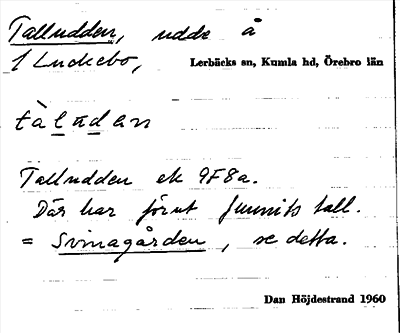 Talludden, udde å
1 Luckebo, Lerbäcks sn, Kumla hd, Örebro län
tàlud​an
Talludden ek 9F8a.
Där har förut funnits tall.
= Svinagården, se detta.
Dan Höjdestrand 1960